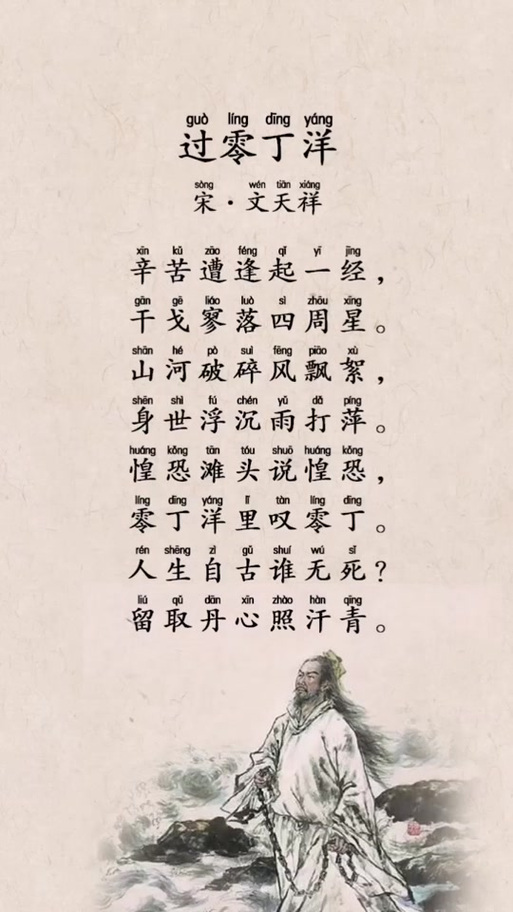 guò líng dīng yáng
过零丁洋
sòng wén tiān xiáng
宋·文天祥
xīn kǔ zāo féng qǐ yī jīng
辛苦遭逢起一经，
gān gē liáo luò sì zhōu xīng
干戈寥落四周星。
shān hé pò suì fēng piāo xù
山河破碎风飘絮，
shēn shì fú chén yǔ dǎ píng
身世浮沉雨打萍。
huáng kǒng tān tóu shuō huáng kǒng
惶恐滩头说惶恐，
líng dīng yáng lǐ tàn líng dīng
零丁洋里叹零丁。
rén shēng zì gǔ shuí wú sǐ
人生自古谁无死？
liú qǔ dān xīn zhào hàn qīng
留取丹心照汗青。